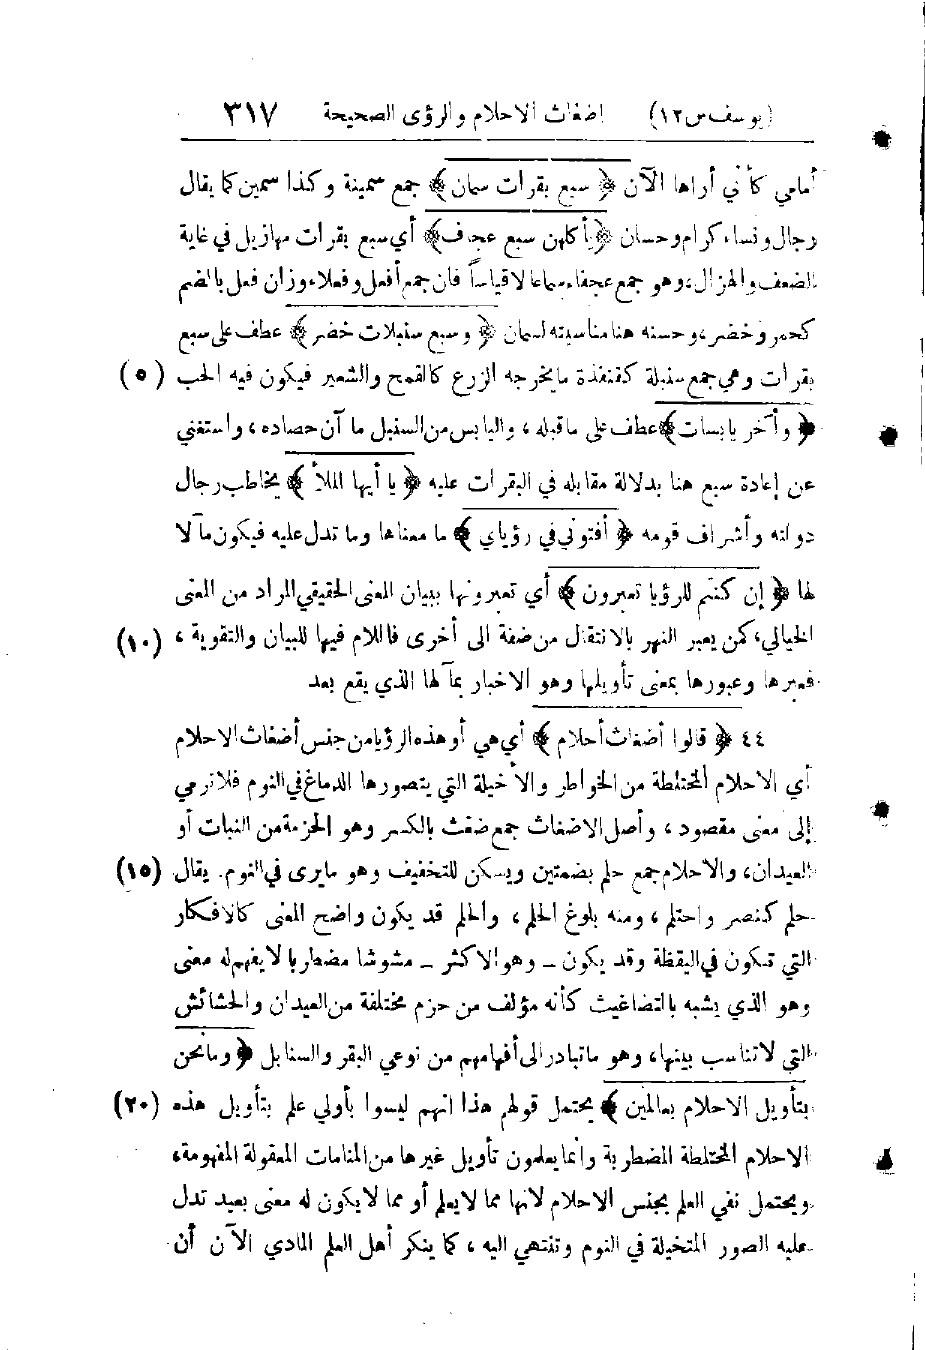 (يوسف س ١٢) اضغاث الاحلام والرؤى الصحيحة ٣١٧
أمامي كأني أراها الآن ﴿ سبع بقرات سمان ﴾ جمع سمينة وكذا سمين كما يقال
رجال ونساء كرام وحسان ﴿ يأكلهن سبع عجاف ﴾ أي سبع بقرات مهازيل في غاية
الضعف والهزال، وهو جمع عجفاء سماعا لا قياساً فان جمع أفعل وفعلاء وزان فعل بالضم
كحمر وخضر، وحسنه هنا مناسبته لسمان ﴿ وسبع سنبلات خضر ﴾ عطف على سبع
بقرات وهي جمع سنبلة كقنفذة ما يخرجه الزرع كالقمح والشعير فيكون فيه الحب (٥)
﴿ وأخر يابسات ﴾ عطف على ما قبله، واليابس من السنبل ما آن حصاده، واستغني
عن إعادة سبع هنا بدلالة مقابله في البقرات عليه ﴿ يا أيها الملأ ﴾ يخاطب رجال
دولته وأشراف قومه ﴿ أفتوني في رؤياي ﴾ ما معناها وما تدل عليه فيكون مآلا
لها ﴿ إن كنتم للرؤيا تعبرون ﴾ أي تعبرونها ببيان المعنى الحقيقي المراد من المعنى
الخيالي، كمن يعبر النهر بالانتقال من ضفة الى أخرى فاللام فيها للبيان والتقوية، (١٠)
فعبرها وعبورها بمعنى تأويلها وهو الاخبار بمآلها الذي يقع بعد
٤٤ ﴿ قالوا أضغاث أحلام ﴾ أي هي أو هذه الرؤيا من جنس أضغاث الاحلام
أي الاحلام المختلطة من الخواطر والأخيلة التي يتصورها الدماغ في النوم فلا ترمي
إلى معنى مقصود، وأصل الاضغاث جمع ضغث بالكسر وهو الحزمة من النبات أو
العيدان، والاحلام جمع حلم بضمتين ويسكن للتخفيف وهو ما يرى في النوم. يقال (١٥)
حلم كنصر واحتلم، ومنه بلوغ الحلم، والحلم قد يكون واضح المعنى كالافكار
التي تكون في اليقظة وقد يكون ـ وهو الاكثر ـ مشوشا مضطربا لا يفهم له معنى
وهو الذي يشبه بالتضاغيث كأنه مؤلف من حزم مختلفة من العيدان والحشائش
التي لا تناسب بينها، وهو ما تبادر الى أفهامهم من نوعي البقر والسنابل ﴿ وما نحن
بتأويل الاحلام بعالمين ﴾ يحتمل قولهم هذا انهم ليسوا بأولي علم بتأويل هذه (٢٠)
الاحلام المختلطة المضطربة وانما يعلمون تأويل غيرها من المنامات المعقولة المفهومة،
ويحتمل نفي العلم بجنس الاحلام لانها مما لا يعلم أو مما لا يكون له معنى بعيد تدل
عليه الصور المتخيلة في النوم وتنتهي اليه، كما ينكر أهل العلم المادي الآن أن